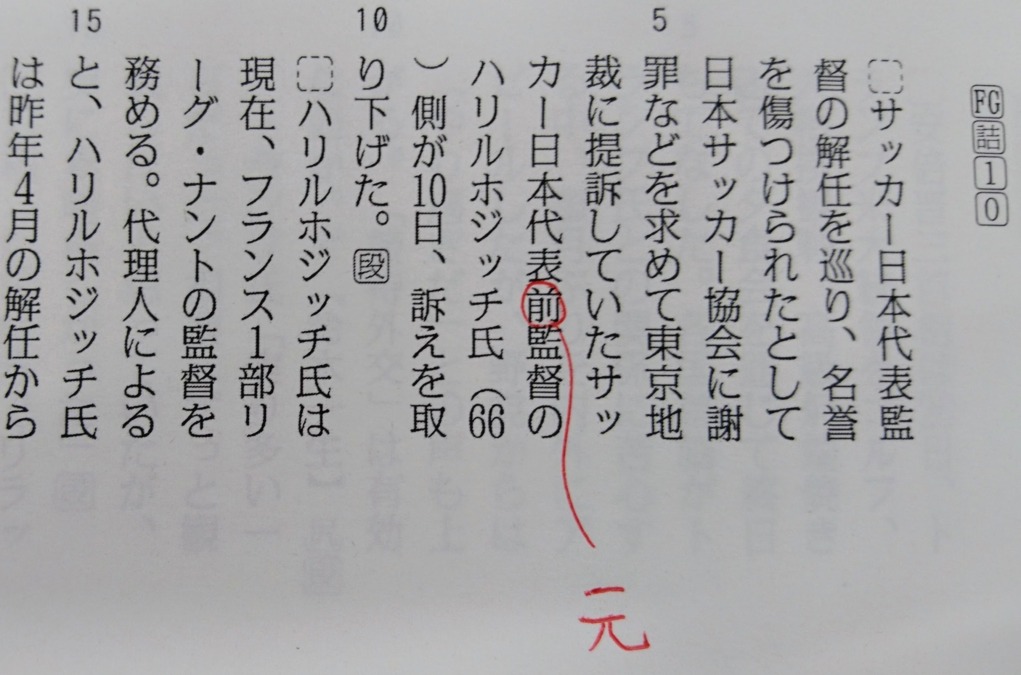 FG詰10
サッカー日本代表監
督の解任を巡り、名誉
を傷つけられたとして
日本サッカー協会に謝
5
罪などを求めて東京地
裁に提訴していたサッ
カー日本代表前監督の
元
ハリルホジッチ氏(66
)側が10日、訴えを取
10
り下げた。段
ハリルホジッチ氏は
現在、フランス1部リ
ーグ・ナントの監督を
務める。代理人による
15
と、ハリルホジッチ氏
は昨年4月の解任から